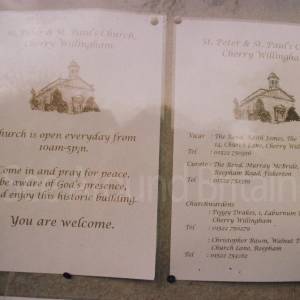 St. Peter & St. Paul's Church,
Cherry Willingham
Church is open everyday from
10am-5pm.
Come in and pray for peace,
be aware of God's presence,
and enjoy this historic building.
You are welcome.
St. Peter & St. Paul's Church
Cherry Willingham
Vicar : The Revd.
14, Church Lane, Cherry
Tel
Curate : The Revd. Murray McBride,
Reepham Road, Fiskerton.
Tel
Churchwardens
: Peggy Drakes, 1, Laburnum
Cherry Willingham
Tel
: Christopher
Church Lane, Reepham
Tel